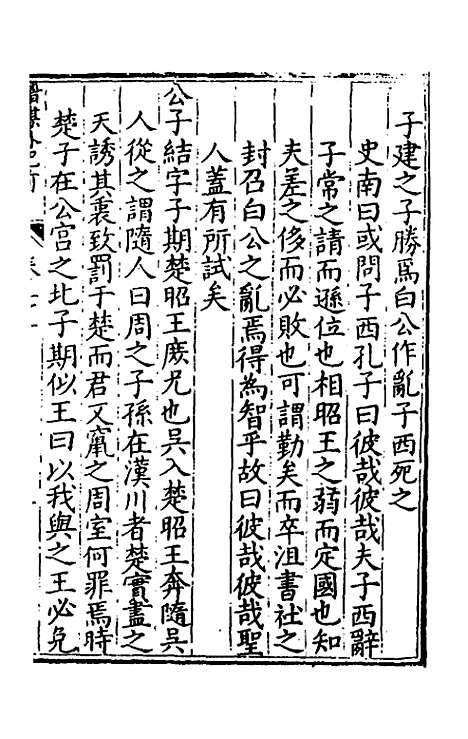 子建之子勝爲白公作亂子西死之
史南曰或問子西孔子曰彼哉彼哉夫子西辭
子常之請而遜位也相昭王之弱而定國也知
夫差之侈而必敗也可謂勤矣而卒沮書社之
封召白公之亂焉得爲智乎故曰彼哉彼哉聖
人蓋有所試矣
公子結字子期楚昭王庶兄也吳入楚昭王奔隨吳
人從之謂隨人曰周之子孫在漢川者楚實盡之
天誘其衷致罰于楚而君又竄之周室何罪焉時
楚子在公宮之北子期似王曰以我與之王必免